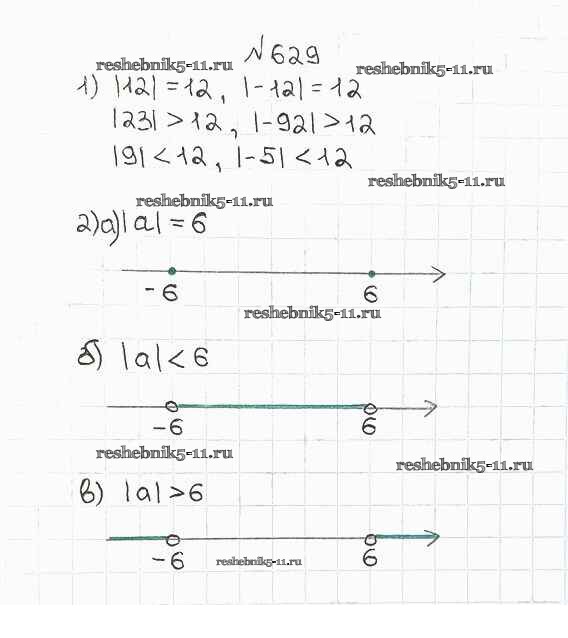 №629
reshebnik5-11.ru reshebnik5-11.ru
1) |12| = 12, |-12| = 12
|23| > 12, |-92| > 12
|9| < 12, |-5| < 12
reshebnik5-11.ru
reshebnik5-11.ru
2) а) |a| = 6
-6 6
reshebnik5-11.ru
б) |a| < 6
-6 6
reshebnik5-11.ru
reshebnik5-11.ru
в) |a| > 6
-6 reshebnik5-11.ru 6